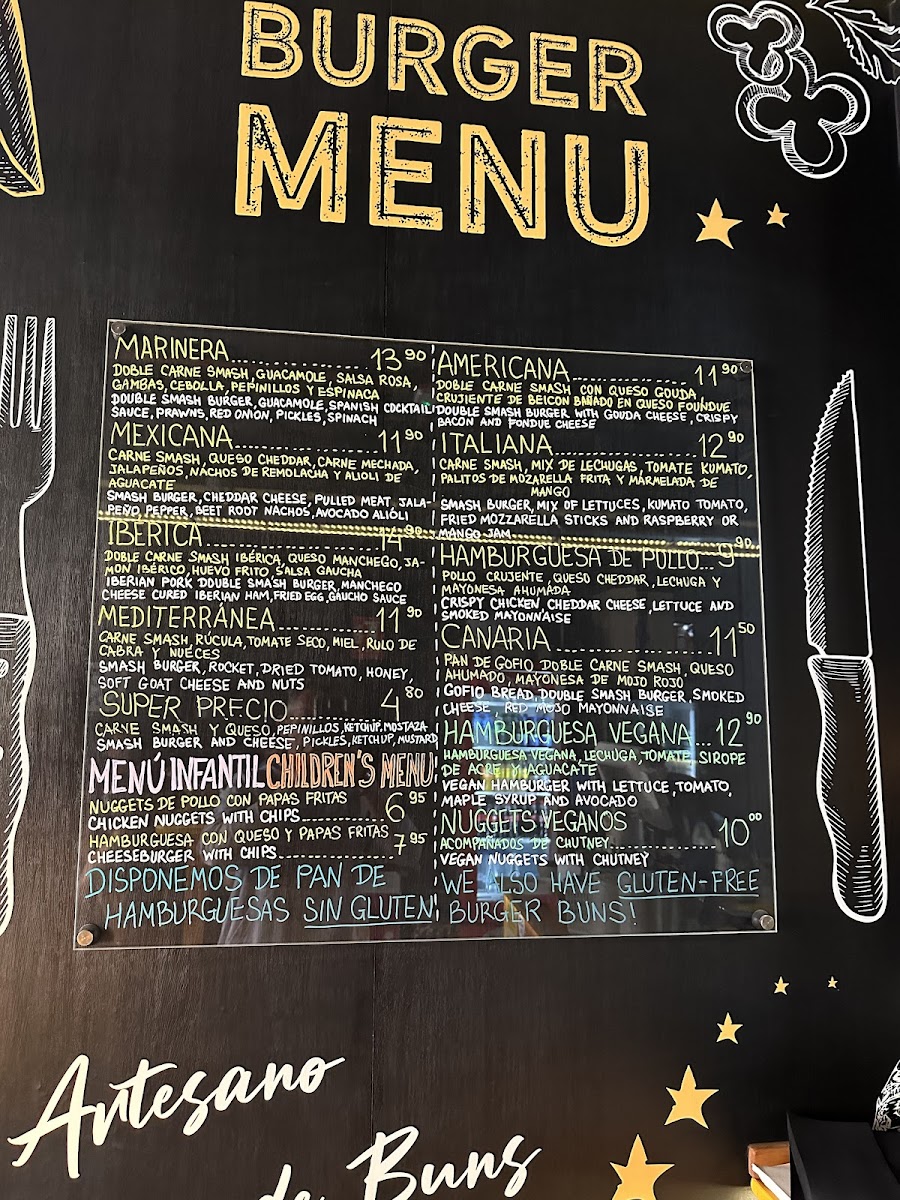 BURGER
MENU
MARINERA 13 90
DOBLE CARNE SMASH, GUACAMOLE, SALSA ROSA,
GAMBAS, CEBOLLA, PEPINILLOS Y ESPINACA
DOUBLE SMASH BURGER, GUACAMOLE, SPANISH COCKTAIL
SAUCE, PRAWNS, RED ONION, PICKLES, SPINACH
MEXICANA 11 90
CARNE SMASH, QUESO CHEDDAR, CARNE MECHADA,
JALAPEÑOS, NACHOS DE REMOLACHA Y ALIOLI DE
AGUACATE
SMASH BURGER, CHEDDAR CHEESE, PULLED MEAT, JALA-
PEÑO PEPPER, BEET ROOT NACHOS, AVOCADO ALIOLI
IBÉRICA 14 90
DOBLE CARNE SMASH IBÉRICA, QUESO MANCHEGO, JA-
MON IBÉRICO, HUEVO FRITO SALSA GAUCHA
IBERIAN PORK DOUBLE SMASH BURGER, MANCHEGO
CHEESE CURED IBERIAN HAM, FRIED EGG, GAUCHO SAUCE
MEDITERRÁNEA 11 90
CARNE SMASH, RÚCULA, TOMATE SECO, MIEL, RULO DE
CABRA Y NUECES
SMASH BURGER, ROCKET, DRIED TOMATO, HONEY,
SOFT GOAT CHEESE AND NUTS
SUPER PRECIO 4 80
CARNE SMASH Y QUESO, PEPINILLOS, KETCHUP, MOSTAZA
SMASH BURGER AND CHEESE, PICKLES, KETCHUP, MUSTARD
MENÚ INFANTIL CHILDREN'S MENU
NUGGETS DE POLLO CON PAPAS FRITAS
CHICKEN NUGGETS WITH CHIPS 6 95
HAMBURGUESA CON QUESO Y PAPAS FRITAS
CHEESEBURGER WITH CHIPS 7 95
DISPONEMOS DE PAN DE
HAMBURGUESAS SIN GLUTEN!
AMERICANA 11 90
DOBLE CARNE SMASH CON QUESO GOUDA,
CRUJIENTE DE BEICON BAÑADO EN QUESO FOUNDUE
DOUBLE SMASH BURGER WITH GOUDA CHEESE, CRISPY
BACON AND FONDUE CHEESE
ITALIANA 12 90
CARNE SMASH, MIX DE LECHUGAS, TOMATE KUMATO,
PALITOS DE MOZARELLA FRITA Y MARMELADA DE
MANGO
SMASH BURGER, MIX OF LETTUCES, KUMATO TOMATO,
FRIED MOZZARELLA STICKS AND RASPBERRY OR
MANGO JAM
HAMBURGUESA DE POLLO 9 90
POLLO CRUJENTE, QUESO CHEDDAR, LECHUGA Y
MAYONESA AHUMADA
CRISPY CHICKEN, CHEDDAR CHEESE, LETTUCE AND
SMOKED MAYONNAISE
CANARIA 11 50
PAN DE GOFIO, DOBLE CARNE SMASH, QUESO
AHUMADO, MAYONESA DE MOJO ROJO
GOFIO BREAD, DOUBLE SMASH BURGER, SMOKED
CHEESE, RED MOJO MAYONNAISE
HAMBURGUESA VEGANA 12 90
HAMBURGUESA VEGANA, LECHUGA, TOMATE, SIROPE
DE ACRE Y AGUACATE
VEGAN HAMBURGER WITH LETTUCE, TOMATO,
MAPLE SYRUP AND AVOCADO
NUGGETS VEGANOS
ACOMPAÑADOS DE CHUTNEY 10 00
VEGAN NUGGETS WITH CHUTNEY
WE ALSO HAVE GLUTEN-FREE
BURGER BUNS!
Artesano
de Buns